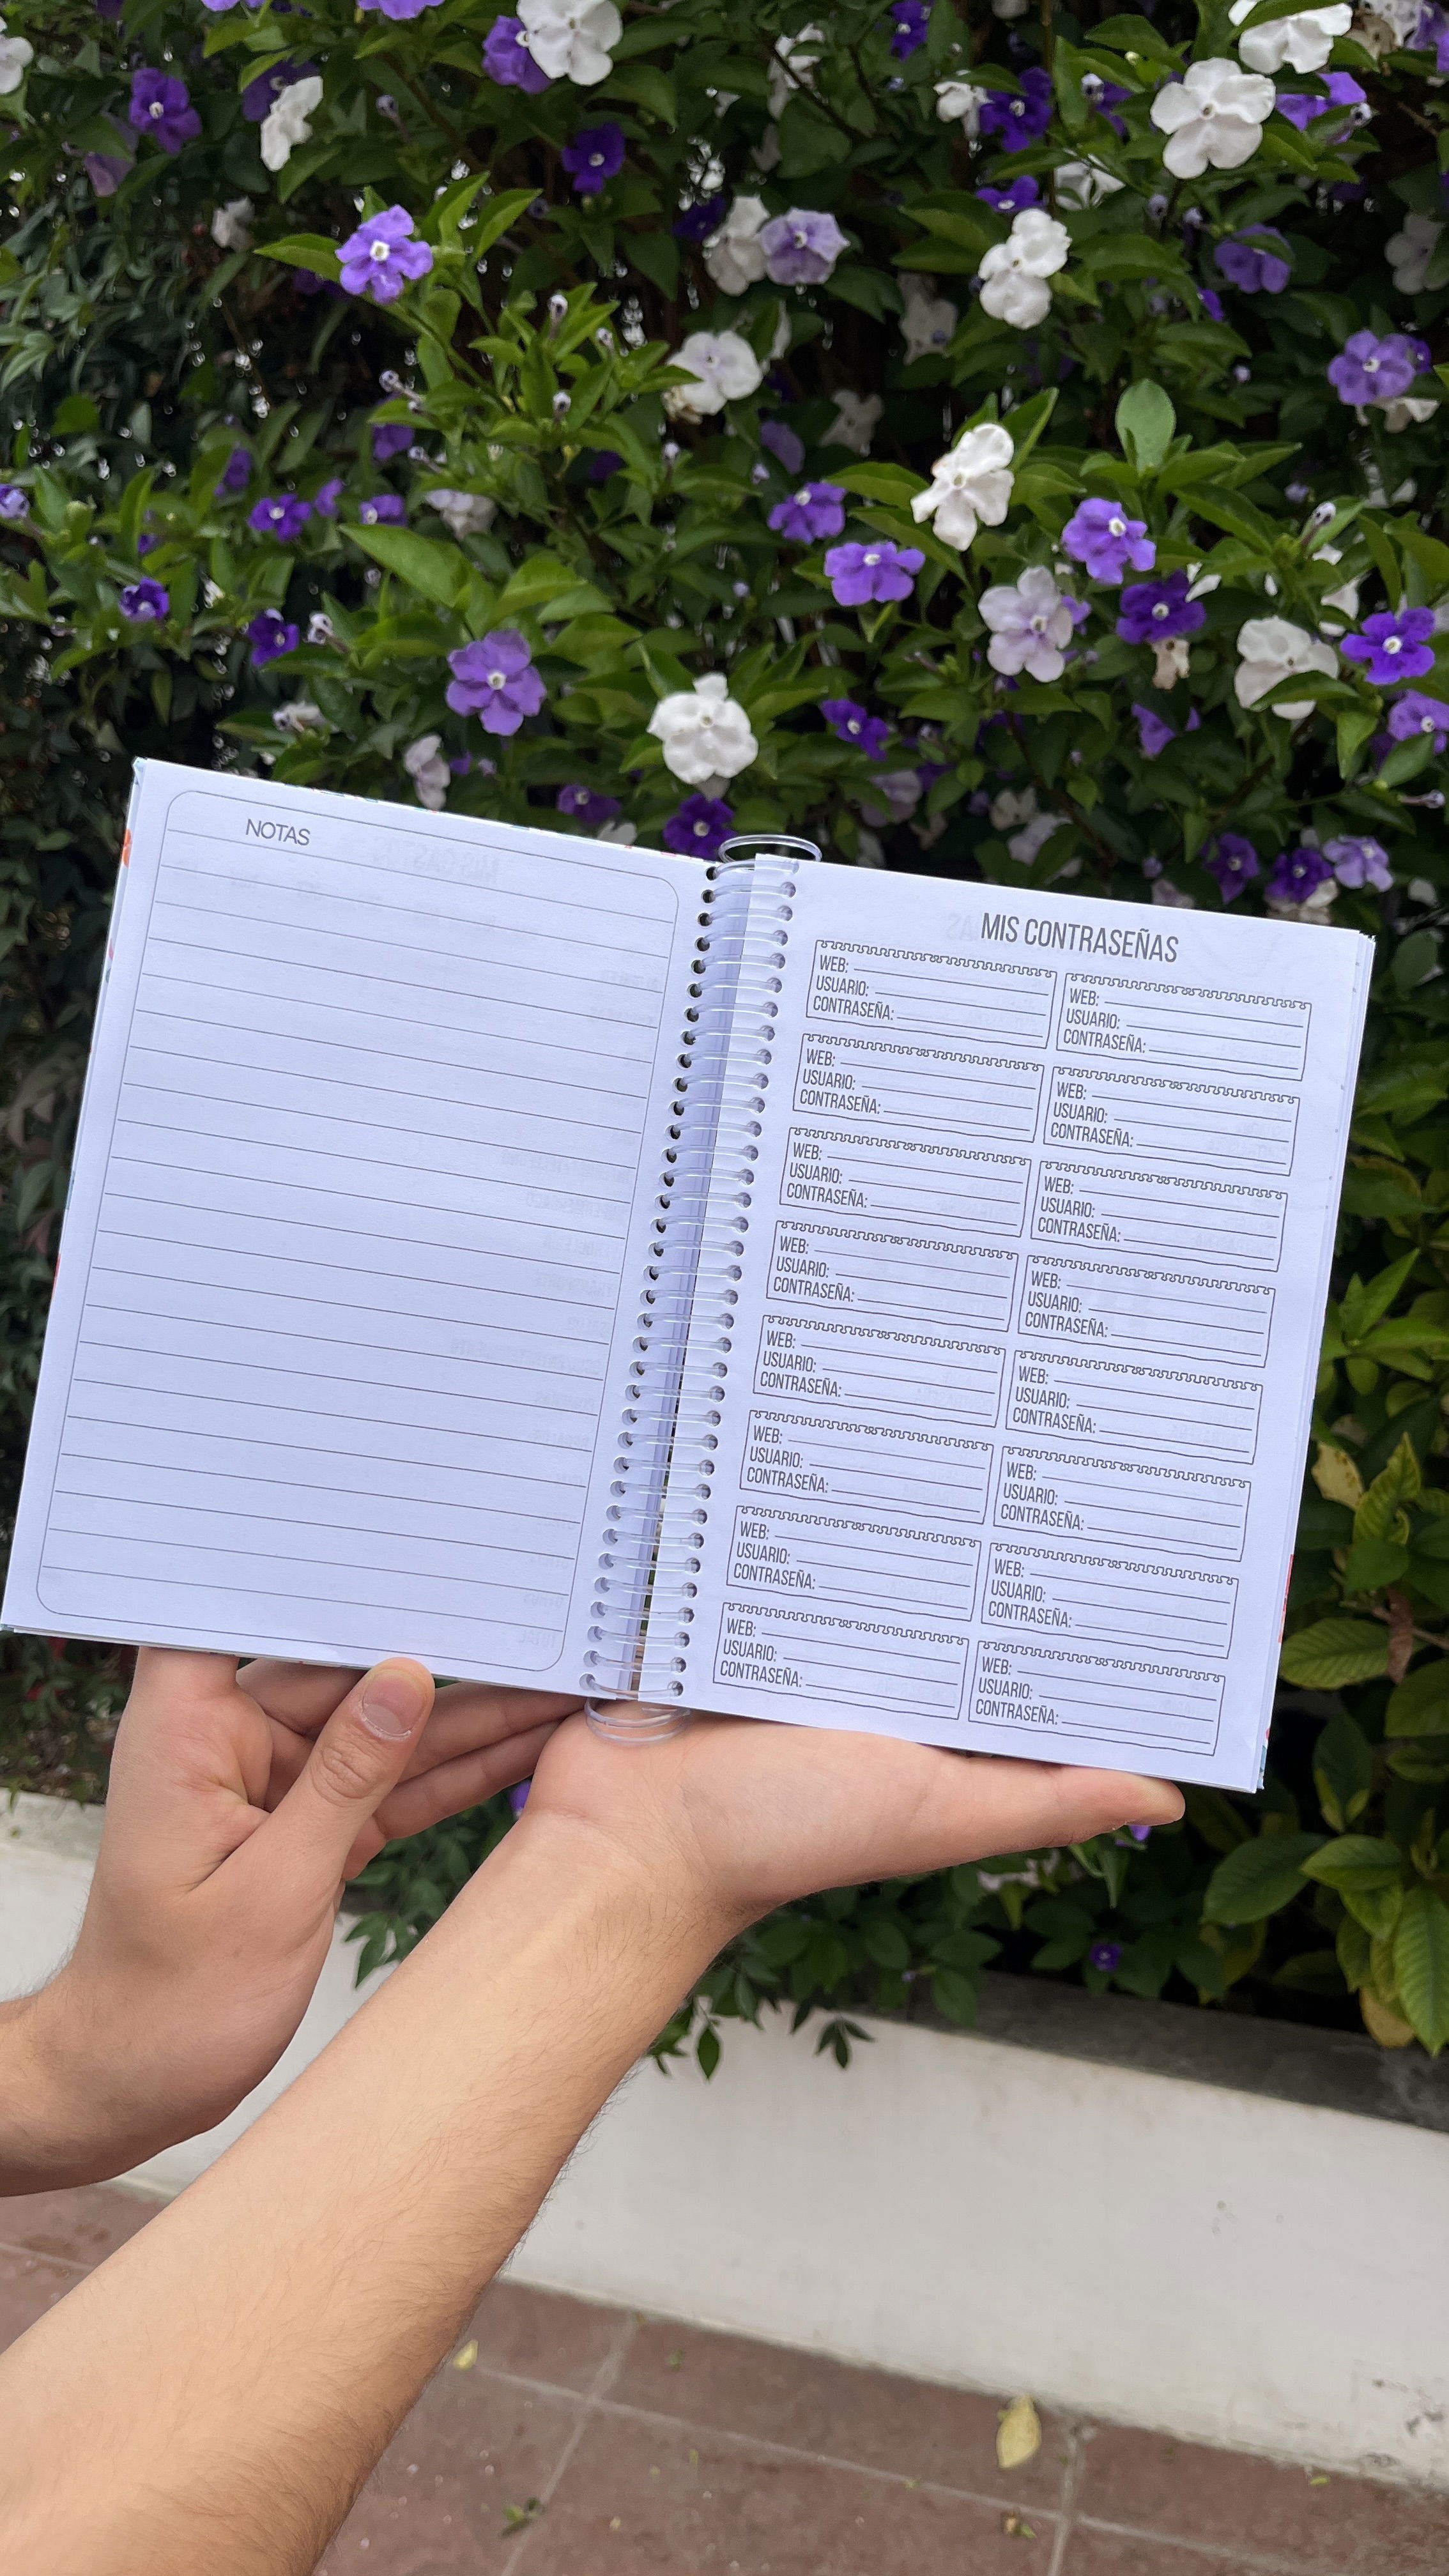 NOTAS
MIS CONTRASEÑAS
WEB:
USUARIO:
CONTRASEÑA:
WEB:
USUARIO:
CONTRASEÑA:
WEB:
USUARIO:
CONTRASEÑA:
WEB:
USUARIO:
CONTRASEÑA:
WEB:
USUARIO:
CONTRASEÑA:
WEB:
USUARIO:
CONTRASEÑA:
WEB:
USUARIO:
CONTRASEÑA:
WEB:
USUARIO:
CONTRASEÑA:
WEB:
USUARIO:
CONTRASEÑA:
WEB:
USUARIO:
CONTRASEÑA:
WEB:
USUARIO:
CONTRASEÑA:
WEB:
USUARIO:
CONTRASEÑA:
WEB:
USUARIO:
CONTRASEÑA:
WEB:
USUARIO:
CONTRASEÑA:
WEB:
USUARIO:
CONTRASEÑA:
WEB:
USUARIO:
CONTRASEÑA: